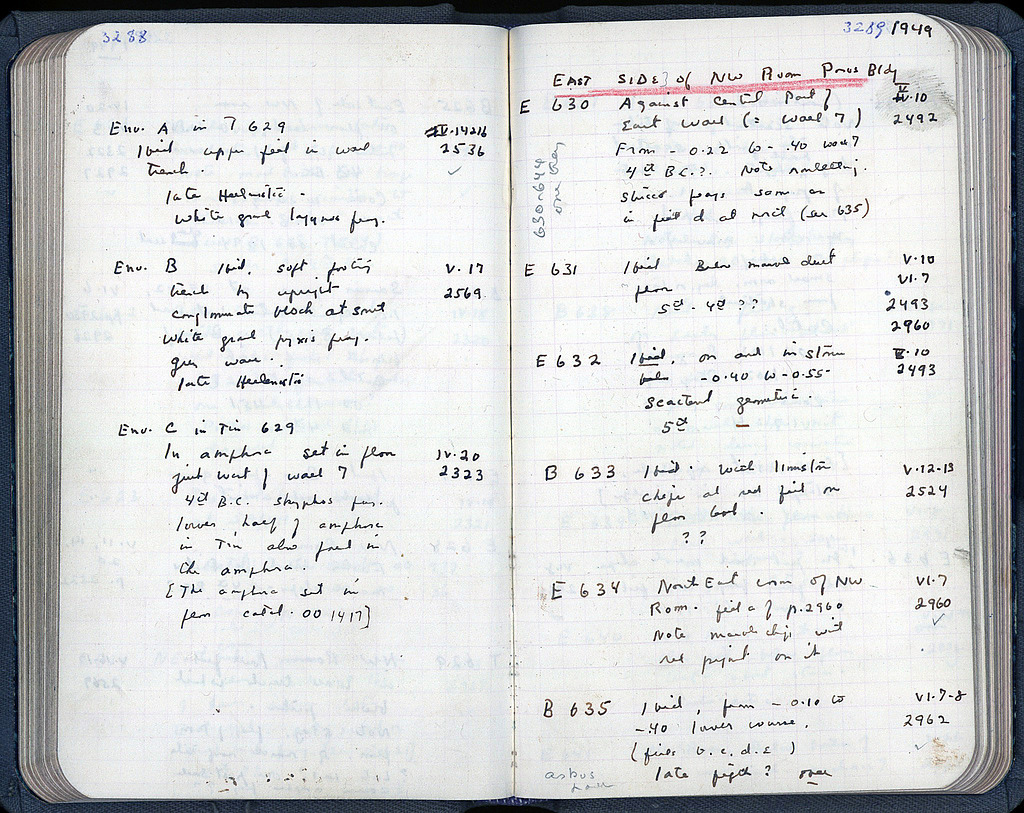 3288
Env. A in T 629
Ibid upper fill in wall
2536
trench.
late Hellenistic.
white grnd lagynos frag.
Env. B Ibid. soft footing
V.17
trench by upright
2569
conglomerate block at south
white grnd pyxis frag.
grey ware.
late Hellenistic
Env. C in Tin 629
In amphora set in floor
IV.20
just west of wall 7
2323
4th B.C. skyphos frag.
lower half of amphora
in Tin also found in
the amphora.
[The amphora set in
floor catal. 001417]
3289 1949
EAST SIDE of NW Room Poros Bldg
E 630 Against Central Part of
V.10
East wall (= wall 7)
2492
From -0.22 to -.40
4th B.C.?. Note
stucco frags some
in (see 635)
630-644
one tray
E 631 Ibid Below marble dust
V.10
floor
VI.7
5th - 4th ??
2493
2960
E 632 Ibid, on and in stone
V.10
-0.40 to -0.55
2493
Scattered geometric.
5th
B 633 Ibid. with limestone
V-12-13
chips at red fill on
2524
floor
??
E 634 North East corner of NW
VI.7
Room. p. 2960
2960
Note marble chip with
red pigment on it
B 635 Ibid, from -0.10 to
VI-7-8
-.40 lower course.
2962
(fills b.c.d.e)
late fifth? one
askos